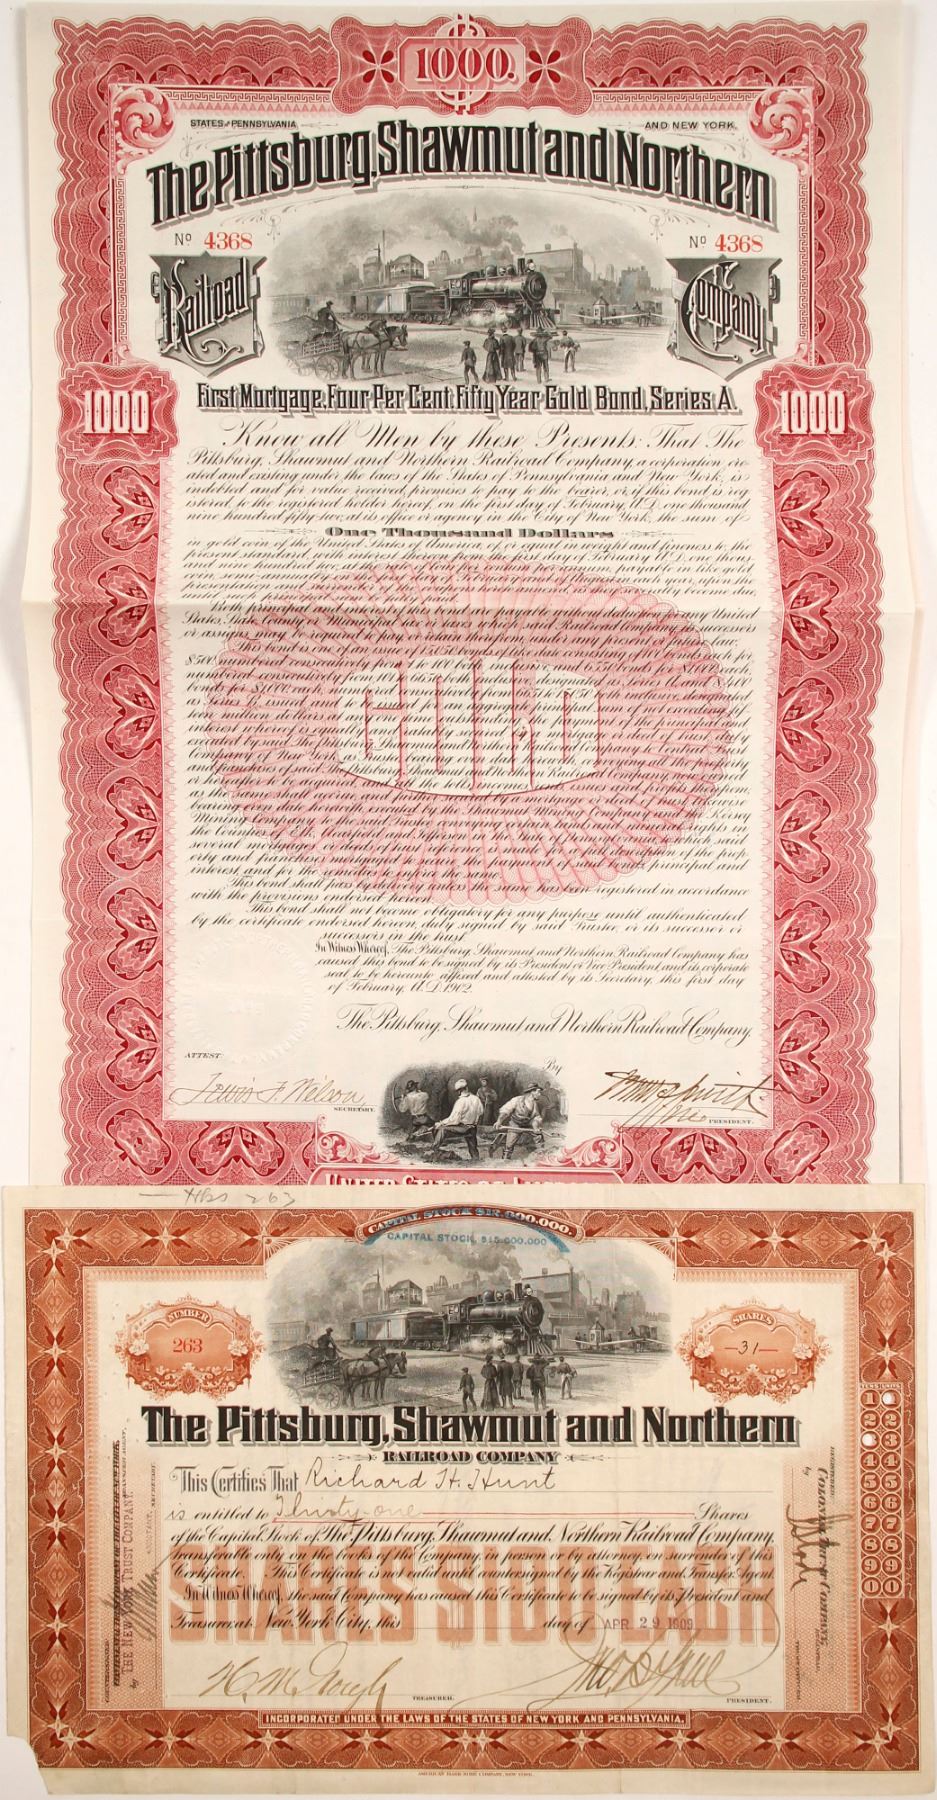 1000.
STATES OF PENNSYLVANIA AND NEW YORK.
The Pittsburg, Shawmut and Northern
No 4368 No 4368
Railroad Company
First Mortgage, Four Per Cent Fifty Year Gold Bond, Series A.
1000 1000
Know all Men by these Presents: That The
Pittsburg, Shawmut and Northern Railroad Company, a corporation cre-
ated and existing under the laws of the States of Pennsylvania and New York, is
indebted and for value received, promises to pay to the bearer, or, if this bond is reg-
istered, to the registered holder hereof, on the first day of February, A.D. one thousand
nine hundred fifty-two, at its office or agency in the City of New York, the sum of
One Thousand Dollars
in gold coin of the United States of America, of or equal in weight and fineness to the
present standard, with interest thereon from the first day of February, A.D. one thous-
and nine hundred two, at the rate of four per centum per annum, payable in like gold
coin, semi-annually on the first days of February and August in each year, upon the
presentation and surrender of the coupons hereto annexed, as they severally become due,
until such principal sum shall be paid.
Both principal and interest of this bond are payable without deduction for any United
States, State, County or Municipal tax or taxes which said Railroad Company, its successors
or assigns, may be required to pay or retain therefrom, under any present or future law.
This bond is one of an issue of 15050 bonds of like date consisting of 100 bonds for
$500 numbered consecutively from 1 to 100 both inclusive and 6550 bonds for $1,000 each,
numbered consecutively from 101 to 6650 both inclusive, designated as Series A, and 8,400
bonds for $1,000 each, numbered consecutively from 6651 to 15050 both inclusive, designated
as Series B, issued and to be issued for an aggregate principal sum of not exceeding
teen million dollars at any one time outstanding, the payment of the principal and
interest whereof is equally and ratably secured by a mortgage or deed of trust duly
executed by said The Pittsburg, Shawmut and Northern Railroad Company to Central Trust
Company of New York, as Trustee, bearing even date herewith, conveying all the property
and franchises of said The Pittsburg, Shawmut and Northern Railroad Company, now owned
or hereafter to be acquired, and all the tolls, incomes, rents, issues and profits therefrom,
as the same shall accrue, and further secured by a mortgage or deed of trust, likewise
bearing even date herewith, executed by the Shawmut Mining Company and the Kersey
Mining Company to the said Trustee conveying certain lands and mineral rights in
the Counties of Elk, Clearfield and Jefferson in the State of Pennsylvania, to which said
several mortgages or deeds of trust reference is made for a full description of the prop-
erty and franchises mortgaged to secure the payment of said bonds, principal and
interest, and for the remedies to enforce the same.
This bond shall pass by delivery unless the same has been registered in accordance
with the provisions endorsed hereon.
This bond shall not become obligatory for any purpose until authenticated
by the certificate endorsed hereon, duly signed by said Trustee, or its successor or
successors in the trust.
In Witness Whereof, The Pittsburg, Shawmut and Northern Railroad Company has
caused this bond to be signed by its President or Vice President and its corporate
seal to be hereunto affixed and attested by its Secretary, this first day
of February, A.D. 1902.
GOLD
The Pittsburg, Shawmut and Northern Railroad Company.
ATTEST: By
Lewis F. Wilson
SECRETARY. PRESIDENT.
263
CAPITAL STOCK $12,000,000.
CAPITAL STOCK, $15,000,000
NUMBER SHARES
263 —31—
The Pittsburg, Shawmut and Northern
RAILROAD COMPANY
This Certifies That Richard H. Hunt
is entitled to Thirty one Shares
of the Capital Stock of The Pittsburg, Shawmut and Northern Railroad Company,
transferable only on the books of the Company, in person or by attorney, on surrender of this
Certificate. This Certificate is not valid until countersigned by the Registrar and Transfer Agent.
In Witness Whereof, the said Company has caused this Certificate to be signed by its President and
Treasurer, at New York City, this day of APR 29 1909
SHARES $100 EACH
TREASURER. PRESIDENT.
THE NEW YORK TRUST COMPANY.
INCORPORATED UNDER THE LAWS OF THE STATES OF NEW YORK AND PENNSYLVANIA.
AMERICAN BANK NOTE COMPANY, NEW YORK.